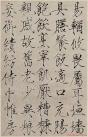 易輶攸畏屬耳垣牆
具膳飡飯適口充腸
飽飫烹宰飢厭糟糠
親戚故舊老少異糧
妾御績紡侍巾帷房